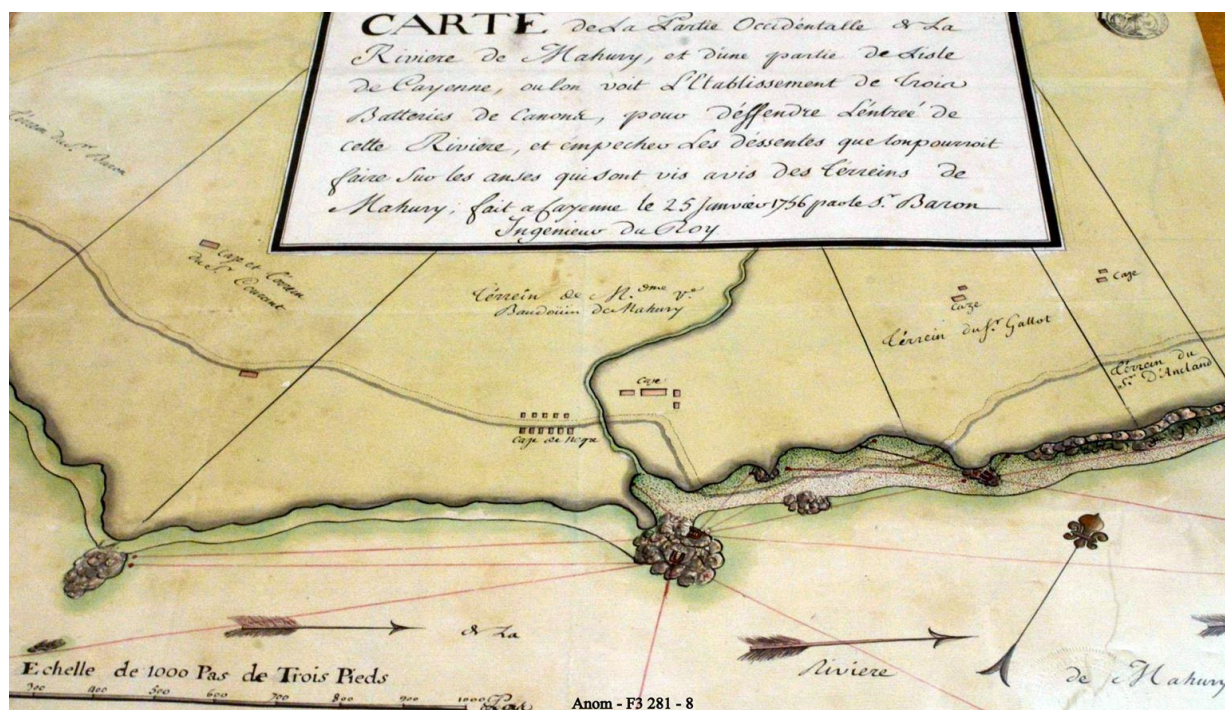 CARTE de La Partie Occidentalle de La
Riviere de Mahury, et d'une partie de Lisle
de Cayenne, ou lon voit L'Etablissement de trois
Batteries de Canons, pour déffendre L'éntreé de
cette Riviere, et empecher Les déssentes que lon pourroit
faire sur les anses qui sont vis avis des térreins de
Mahury, fait a Cayenne le 25 janvier 1756 par le Sr. Baron
Ingenieur du Roy
térrein du Sr. Baron
Caze et térrein
du Sr. Courant
térrein de M.dme Ve.
Baudouin de Mahury
Caze
Caze
térrein du Sr. Gallot
térrein du
Sr. D'Ancland
Caze
Caze de negre
de La
Riviere
de Mahury
Echelle de 1000 Pas de Trois Pieds
300 400 500 600 700 800 900 1000 Pas
Anom - F3 281 - 8